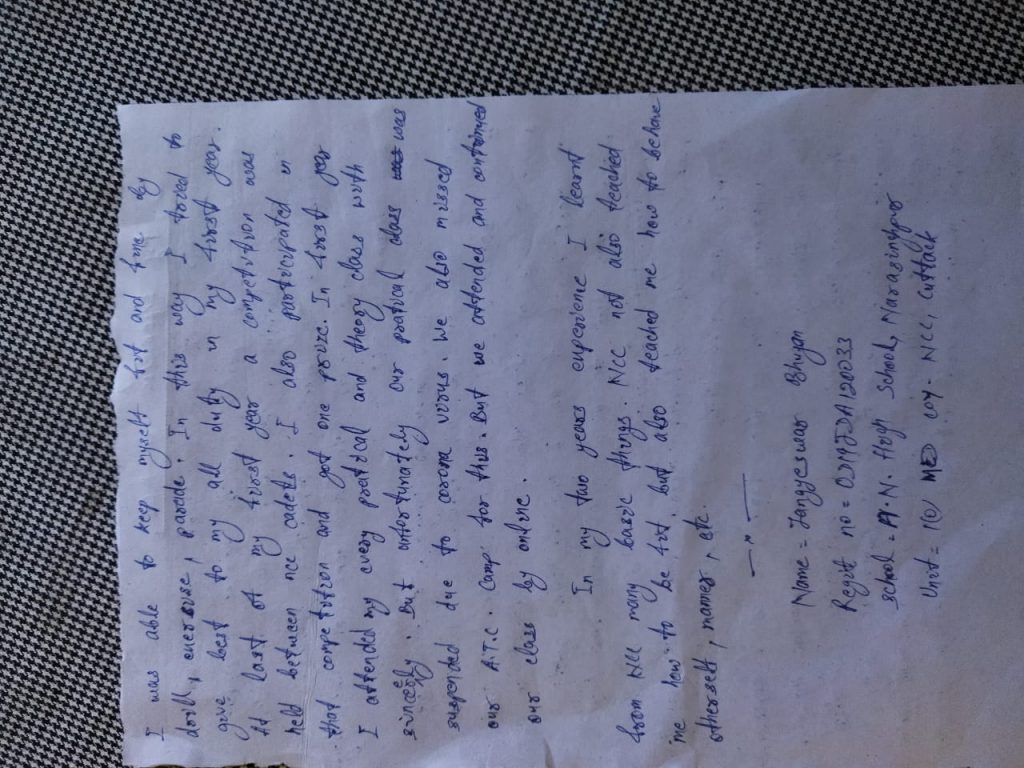 I was able to keep myself fit and fine by
drill, exercise, parade. In this way I tried to
give best to my all duty in my first year.
At last of my first year a competition was
held between ncc cadets. I also participated in
that competition and got one prize. In first year
I attended my every pratical and theory class with
sincerly. But unfortunately our pratical class was
suspended due to corona virus. We also missed
our A.T.C. Camp for this. But we attended and continued
our class by online.
In my two years experience I learnt
from NCC many basic things. NCC not also teached
me how to be fit but also teached me how to behave
otherself, manner, etc.
—"—
Name = Jangyeswar Bhuyan
Regit no = 0219JDA120033
School = P.N. High School, Narasinghpur
Unit = 1(O) MED COY. NCC, Cuttack